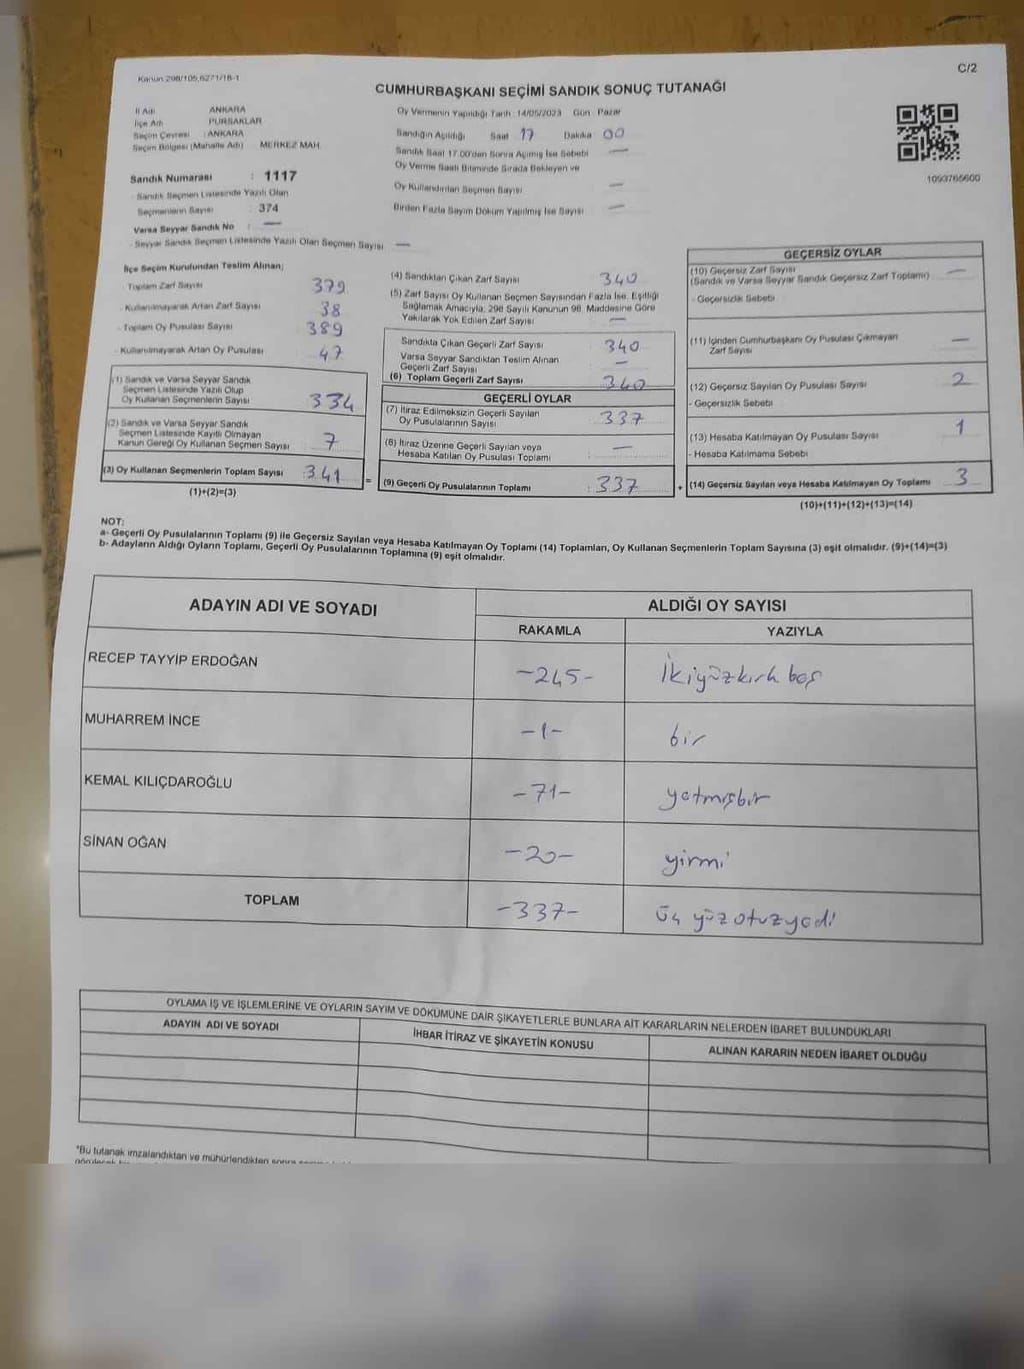 Kanun 298/105,6271/18-1
C/2
CUMHURBAŞKANI SEÇİMİ SANDIK SONUÇ TUTANAĞI
İl Adı ANKARA
İlçe Adı PURSAKLAR
Seçim Çevresi : ANKARA
Seçim Bölgesi (Mahalle Adı) MERKEZ MAH.
Sandık Numarası : 1117
- Sandık Seçmen Listesinde Yazılı Olan
Seçmenlerin Sayısı : 374
Varsa Seyyar Sandık No : —
- Seyyar Sandık Seçmen Listesinde Yazılı Olan Seçmen Sayısı —
Oy Vermenin Yapıldığı Tarih : 14/05/2023 Gün : Pazar
Sandığın Açıldığı Saat 17 Dakika 00
Sandık Saat 17.00'dan Sonra Açılmış İse Sebebi —
Oy Verme Saati Bitiminde Sırada Bekleyen ve
Oy Kullandırılan Seçmen Sayısı —
Birden Fazla Sayım Döküm Yapılmış İse Sayısı —
1093765600
İlçe Seçim Kurulundan Teslim Alınan;
- Toplam Zarf Sayısı 379
- Kullanılmayarak Artan Zarf Sayısı 38
- Toplam Oy Pusulası Sayısı 389
- Kullanılmayarak Artan Oy Pusulası 47
(1) Sandık ve Varsa Seyyar Sandık
Seçmen Listesinde Yazılı Olup
Oy Kullanan Seçmenlerin Sayısı 334
(2) Sandık ve Varsa Seyyar Sandık
Seçmen Listesinde Kayıtlı Olmayan
Kanun Gereği Oy Kullanan Seçmen Sayısı 7
(3) Oy Kullanan Seçmenlerin Toplam Sayısı : 341
(1)+(2)=(3)
=
(4) Sandıktan Çıkan Zarf Sayısı 340
(5) Zarf Sayısı Oy Kullanan Seçmen Sayısından Fazla İse, Eşitliği
Sağlamak Amacıyla, 298 Sayılı Kanunun 98. Maddesine Göre
Yakılarak Yok Edilen Zarf Sayısı —
Sandıkta Çıkan Geçerli Zarf Sayısı 340
Varsa Seyyar Sandıktan Teslim Alınan
Geçerli Zarf Sayısı —
(6) Toplam Geçerli Zarf Sayısı 340
GEÇERLİ OYLAR
(7) İtiraz Edilmeksizin Geçerli Sayılan
Oy Pusulalarının Sayısı : 337
(8) İtiraz Üzerine Geçerli Sayılan veya
Hesaba Katılan Oy Pusulası Toplamı : —
(9) Geçerli Oy Pusulalarının Toplamı : 337
+
GEÇERSİZ OYLAR
(10) Geçersiz Zarf Sayısı —
(Sandık ve Varsa Seyyar Sandık Geçersiz Zarf Toplamı)
- Geçersizlik Sebebi
(11) İçinden Cumhurbaşkanı Oy Pusulası Çıkmayan
Zarf Sayısı —
(12) Geçersiz Sayılan Oy Pusulası Sayısı 2
- Geçersizlik Sebebi
(13) Hesaba Katılmayan Oy Pusulası Sayısı 1
- Hesaba Katılmama Sebebi
(14) Geçersiz Sayılan veya Hesaba Katılmayan Oy Toplamı 3
(10)+(11)+(12)+(13)=(14)
NOT:
a- Geçerli Oy Pusulalarının Toplamı (9) ile Geçersiz Sayılan veya Hesaba Katılmayan Oy Toplamı (14) Toplamları, Oy Kullanan Seçmenlerin Toplam Sayısına (3) eşit olmalıdır. (9)+(14)=(3)
b- Adayların Aldığı Oyların Toplamı, Geçerli Oy Pusulalarının Toplamına (9) eşit olmalıdır.
ADAYIN ADI VE SOYADI
ALDIĞI OY SAYISI
RAKAMLA YAZIYLA
RECEP TAYYİP ERDOĞAN -245- İkiyüzkırk beş
MUHARREM İNCE -1- bir
KEMAL KILIÇDAROĞLU -71- yetmişbir
SİNAN OĞAN -20- yirmi
TOPLAM -337- üç yüz otuz yedi
OYLAMA İŞ VE İŞLEMLERİNE VE OYLARIN SAYIM VE DÖKÜMÜNE DAİR ŞİKAYETLERLE BUNLARA AİT KARARLARIN NELERDEN İBARET BULUNDUKLARI
ADAYIN ADI VE SOYADI İHBAR İTİRAZ VE ŞİKAYETİN KONUSU ALINAN KARARIN NEDEN İBARET OLDUĞU
*Bu tutanak imzalandıktan ve mühürlendikten sonra